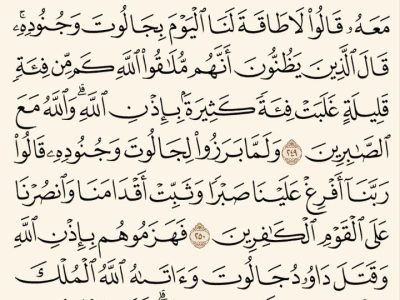 مَعَهُۥ قَالُوا۟ لَا طَاقَةَ لَنَا ٱلْيَوْمَ بِجَالُوتَ وَجُنُودِهِۦۚ
قَالَ ٱلَّذِينَ يَظُنُّونَ أَنَّهُم مُّلَـٰقُوا۟ ٱللَّهِ كَم مِّن فِئَةٍۢ
قَلِيلَةٍ غَلَبَتْ فِئَةًۭ كَثِيرَةًۢ بِإِذْنِ ٱللَّهِۗ وَٱللَّهُ مَعَ
ٱلصَّـٰبِرِينَ ٢٤٩ وَلَمَّا بَرَزُوا۟ لِجَالُوتَ وَجُنُودِهِۦ قَالُوا۟
رَبَّنَآ أَفْرِغْ عَلَيْنَا صَبْرًۭا وَثَبِّتْ أَقْدَامَنَا وَٱنصُرْنَا
عَلَى ٱلْقَوْمِ ٱلْكَـٰفِرِينَ ٢٥٠ فَهَزَمُوهُم بِإِذْنِ ٱللَّهِ
وَقَتَلَ دَاوُۥدُ جَالُوتَ وَءَاتَىٰهُ ٱللَّهُ ٱلْمُلْكَ